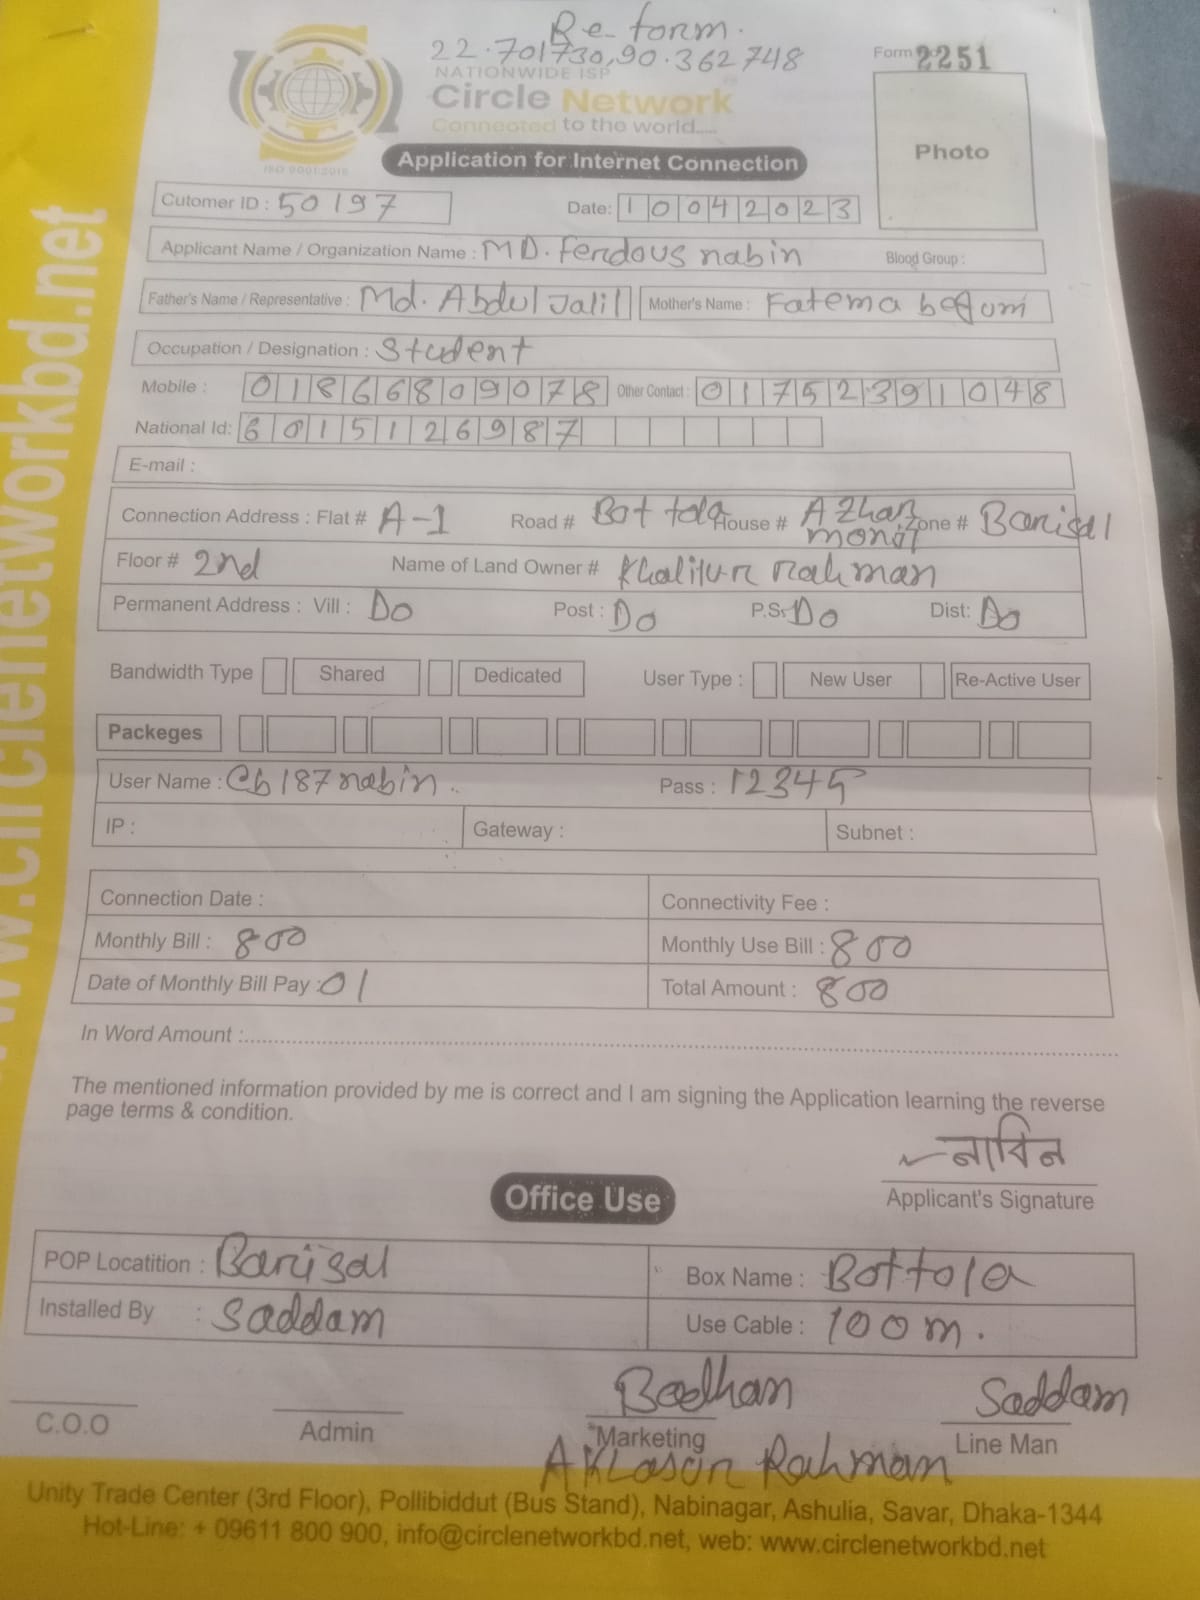 Re-form.
22.701730,90.362748
Form 2251
NATIONWIDE ISP
Circle Network
Connected to the world.....
ISO 9001:2015
Photo
Application for Internet Connection
Cutomer ID : 50197 Date: 10042023
Applicant Name / Organization Name : MD. Ferdous nabin Blood Group :
Father's Name / Representative : Md. Abdul Jalil Mother's Name : Fatema begum
Occupation / Designation : Student
Mobile : 01866809078 Other Contact : 01752391048
National Id: 6015126987
E-mail :
Connection Address : Flat # A-1 Road # Bottola House # Azhar monjil Zone # Barisal
Floor # 2nd Name of Land Owner # Khalilur rahman
Permanent Address : Vill : Do Post : Do P.S: Do Dist: Do
Bandwidth Type Shared Dedicated User Type : New User Re-Active User
Packeges
User Name : Cb187nabin. Pass : 12345
IP : Gateway : Subnet :
Connection Date : Connectivity Fee :
Monthly Bill : 800 Monthly Use Bill : 800
Date of Monthly Bill Pay : 01 Total Amount : 800
In Word Amount :
The mentioned information provided by me is correct and I am signing the Application learning the reverse
page terms & condition.
নাবিন
Applicant's Signature
Office Use
POP Locatition : Barisal Box Name : Bottola
Installed By : Saddam Use Cable : 100m.
Saddam
C.O.O Admin Marketing Line Man
Rahman
Unity Trade Center (3rd Floor), Pollibiddut (Bus Stand), Nabinagar, Ashulia, Savar, Dhaka-1344
Hot-Line: + 09611 800 900, info@circlenetworkbd.net, web: www.circlenetworkbd.net
www.circlenetworkbd.net